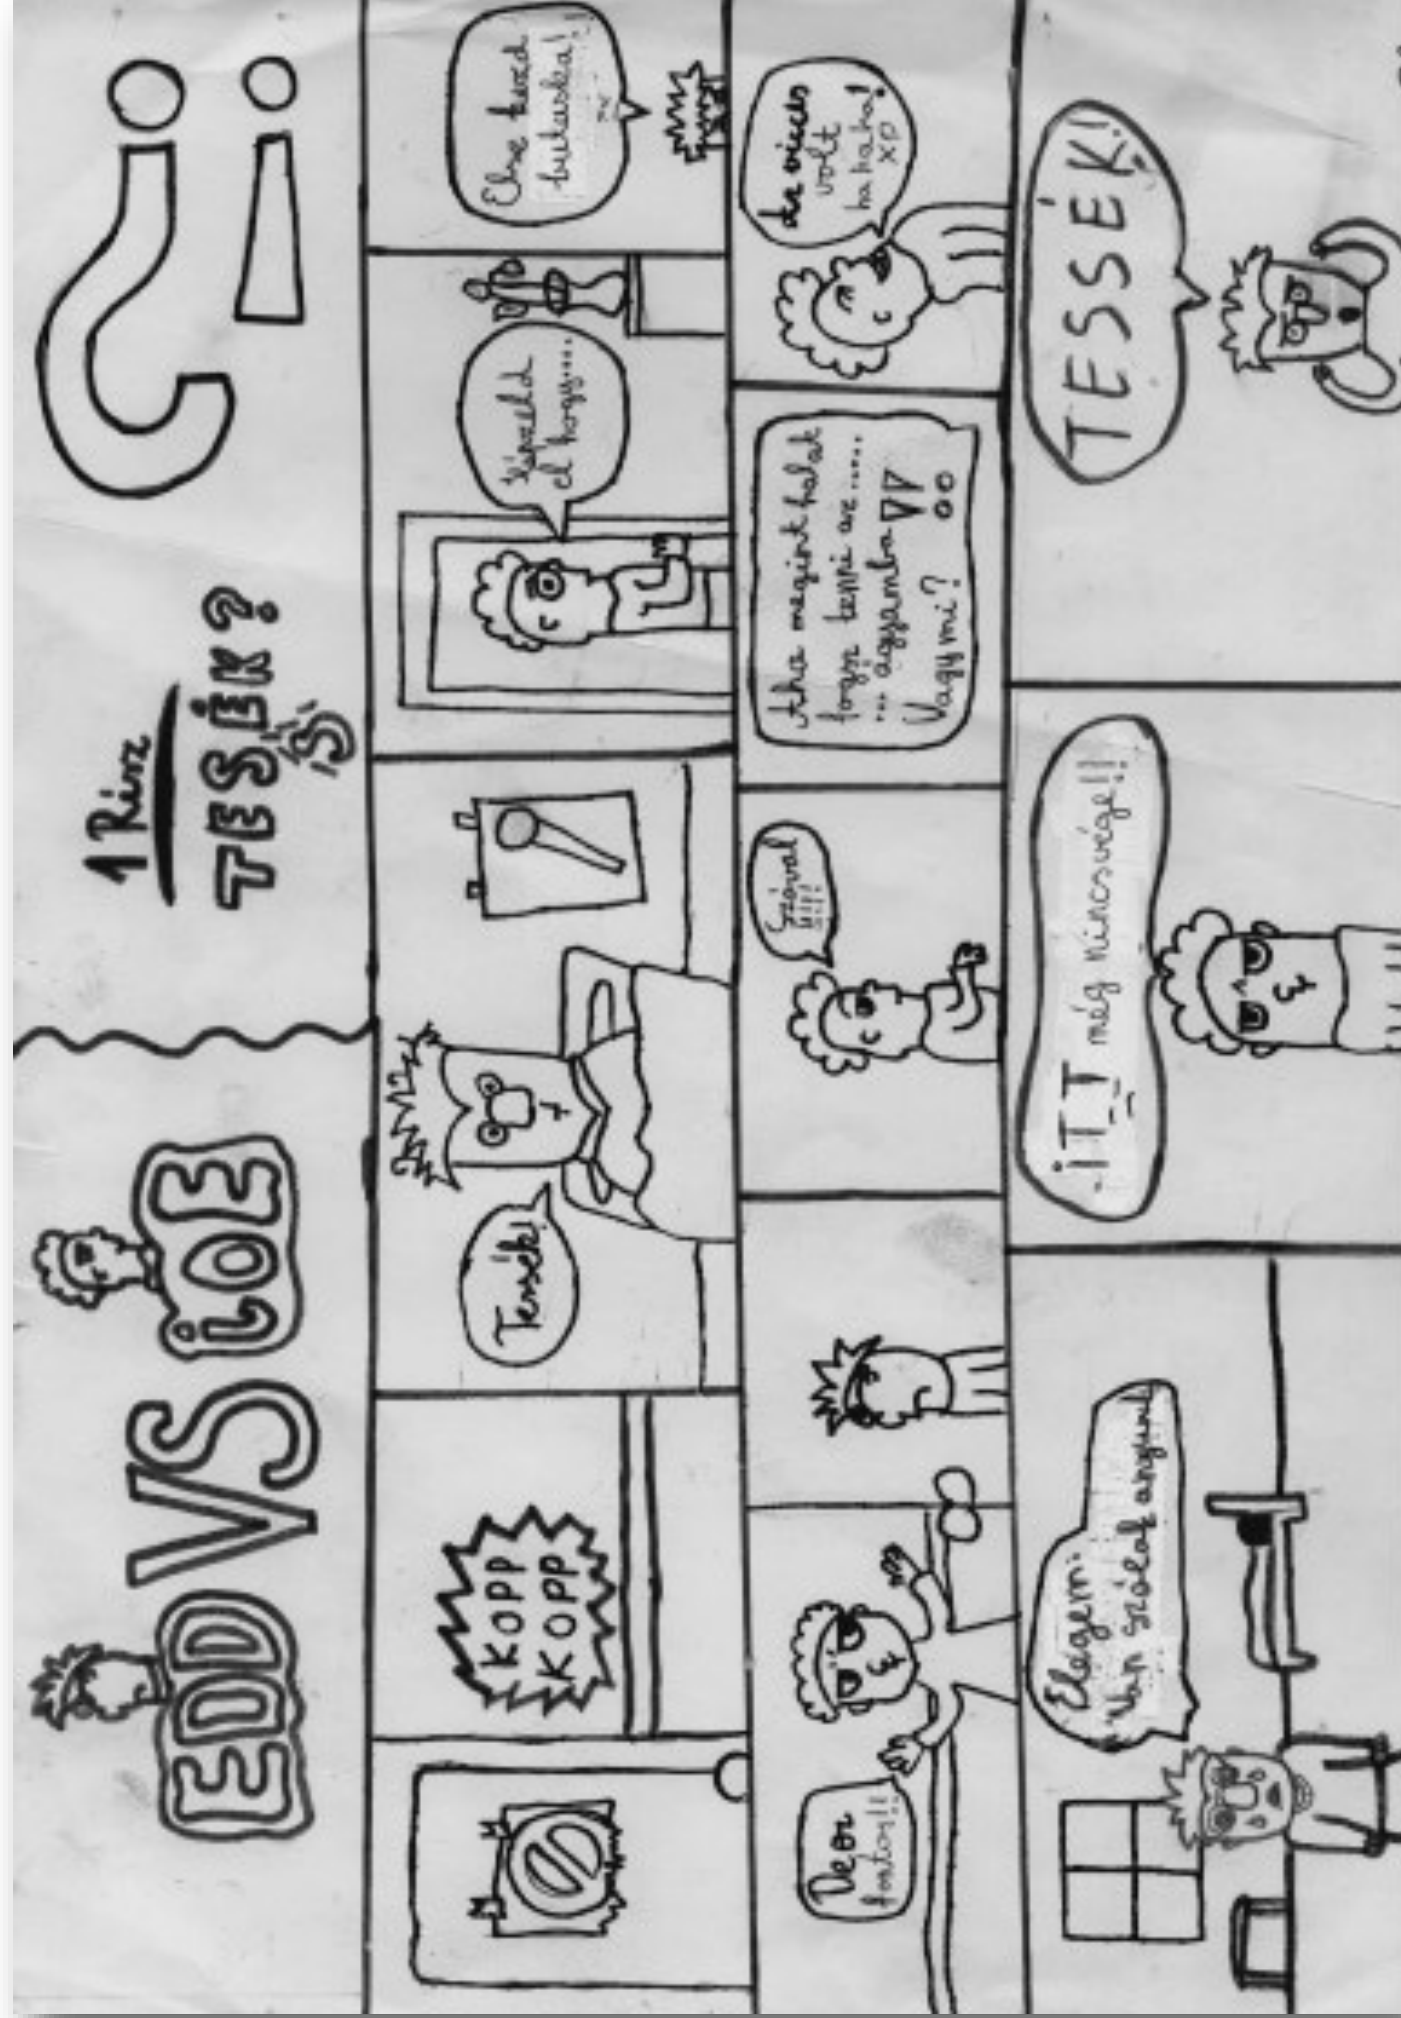 EDD VS JOE
1 Rész
TESÉK?
S
?!
KOPP
KOPP
Tessék!
Képzeld
el hogy....
butuska!
De ez
fontos!!
Szóval
!!!!
Aha megint halat
fogsz tenni az .....
... ágyamba !!
Vagy mi?
Az vicces
volt
hahaha!
XP
Elegem
Van szólok
iTT még nincsvége!!
TESSÉK!